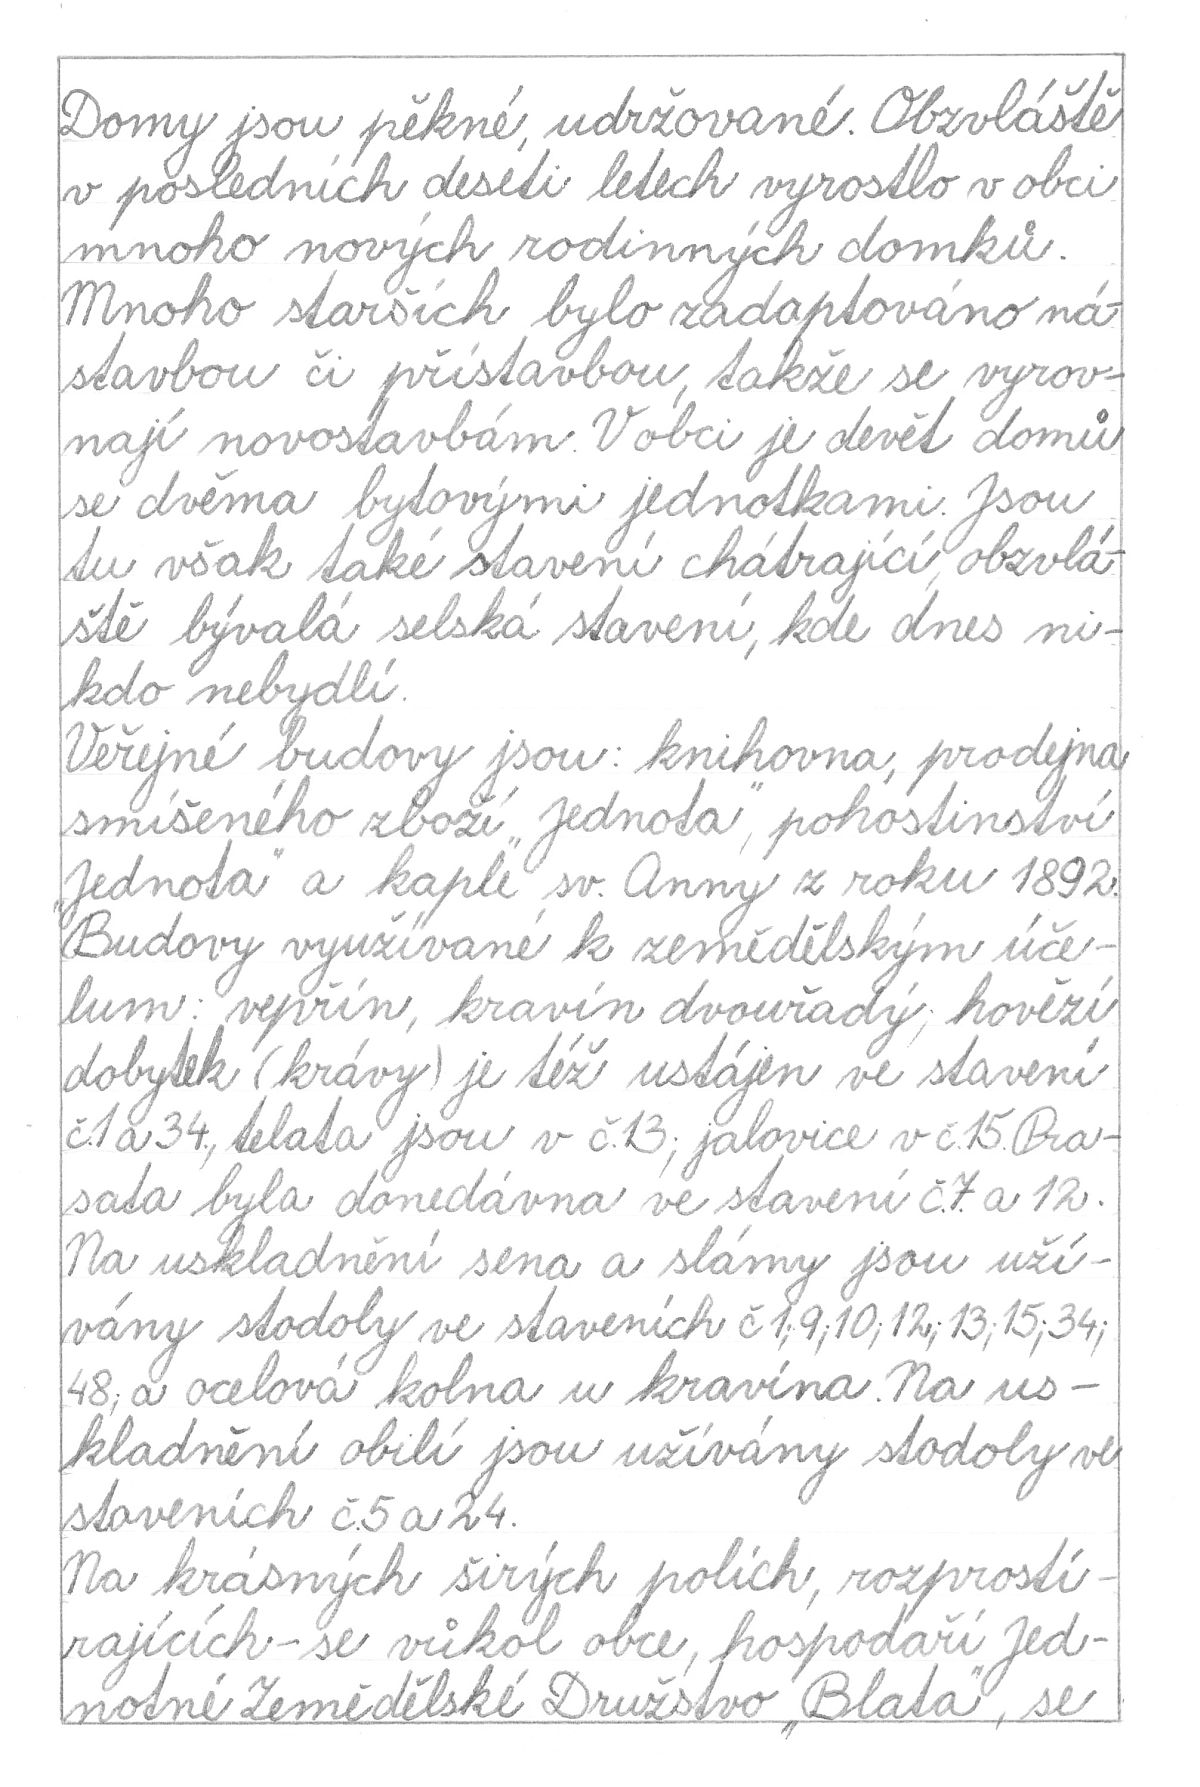 Domy jsou pěkné, udržované. Obzvláště
v posledních deseti letech vyrostlo v obci
mnoho nových rodinných domků.
Mnoho starších bylo zadaptováno ná-
stavbou či přístavbou, takže se vyrov-
nají novostavbám. V obci je devět domů
se dvěma bytovými jednotkami. Jsou
tu však také stavení chátrající, obzvlá-
ště bývalá selská stavení, kde dnes ni-
kdo nebydlí.
Veřejné budovy jsou: knihovna, prodejna
smíšeného zboží „Jednota“, pohostinství
„Jednota“ a kaple sv. Anny z roku 1892.
Budovy využívané k zemědělským úče-
lum: vepřín, kravín dvouřadý; hovězí
dobytek (krávy) je též ustájen ve stavení
č.1 a 34., telata jsou v č.13; jalovice v č.15. Pra-
sata byla donedávna ve stavení č.7. a 12.
Na uskladnění sena a slámy jsou uží-
vány stodoly ve staveních č 1; 9; 10; 12; 13; 15; 34;
48; a ocelová kolna u kravína. Na us-
kladnění obilí jsou užívány stodoly ve
staveních č.5 a 24.
Na krásných širých polích, rozprostí-
rajících-se vůkol obce, hospodaří Jed-
notné Zemědělské Družstvo „Blata“, se